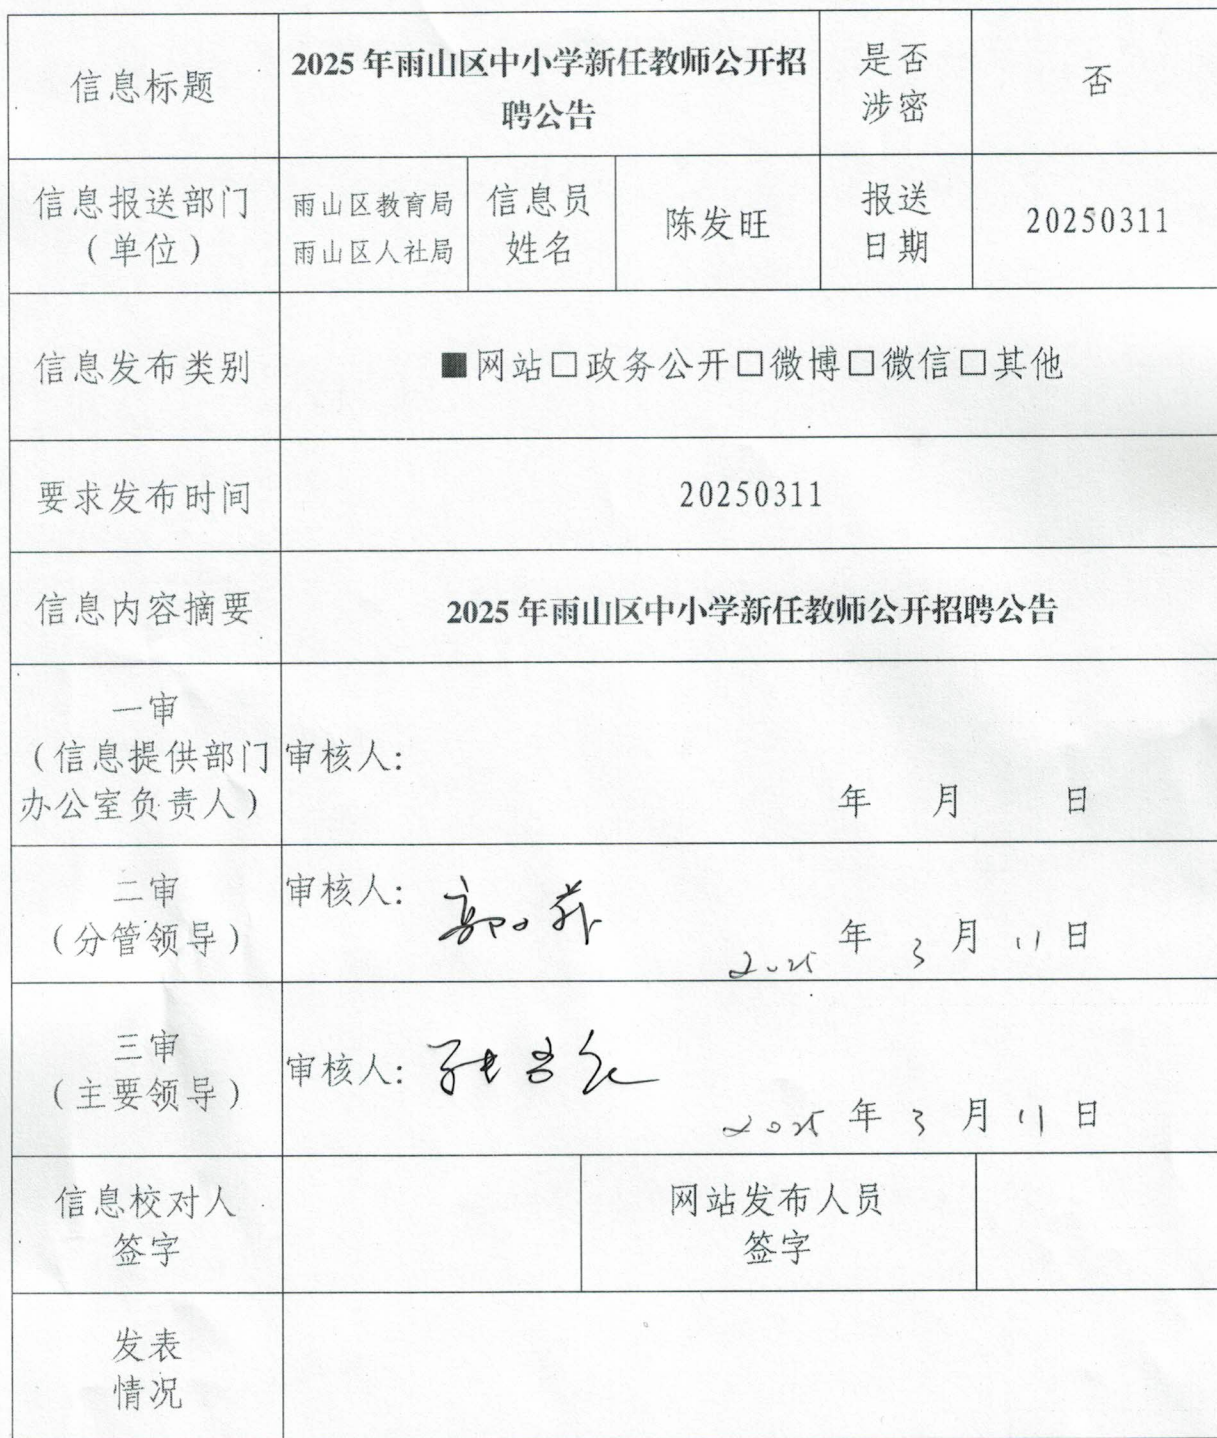 信息标题
2025年雨山区中小学新任教师公开招
聘公告
是否
涉密
否
信息报送部门
（单位）
雨山区教育局
雨山区人社局
信息员
姓名
陈发旺
报送
日期
20250311
信息发布类别
■网站□政务公开□微博□微信□其他
要求发布时间
20250311
信息内容摘要
2025年雨山区中小学新任教师公开招聘公告
一审
（信息提供部门
办公室负责人）
审核人：
年 月 日
二审
（分管领导）
审核人：
2025 年 3 月 11 日
三审
（主要领导）
审核人：
2025 年 3 月 11 日
信息校对人
签字
网站发布人员
签字
发表
情况